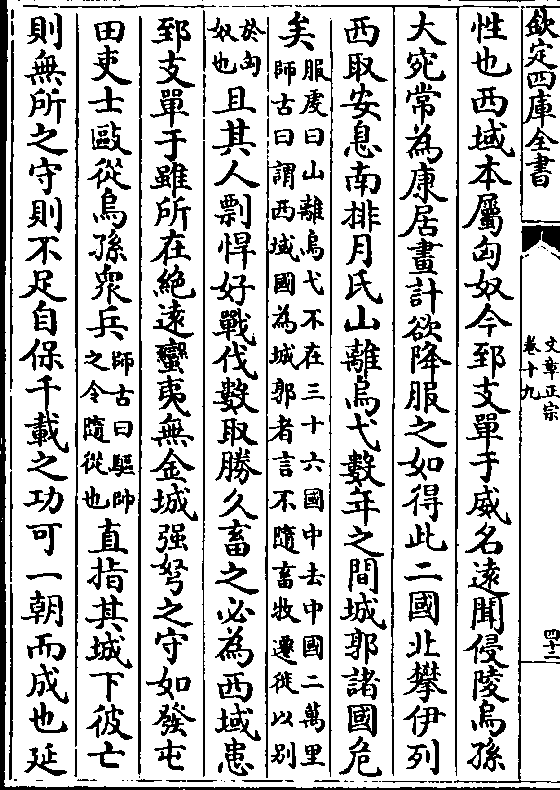 欽定四庫全書
文章正宗
卷十九
四十二
性也西域本屬匈奴今郅支單于威名遠聞侵陵烏孫
大宛常為康居畫計欲降服之如得此二國北擊伊列
西取安息南排月氏山離烏弋數年之間城郭諸國危
矣服虔曰山離烏弋不在三十六國中去中國二萬里
師古曰謂西域國為城郭者言不隨畜牧遷徙以别
於匈
奴也且其人剽悍好戰伐數取勝久畜之必為西域患
郅支單于雖所在絶遠蠻夷無金城强弩之守如發屯
田吏士敺從烏孫衆兵師古曰驅帥
之令隨從也直指其城下彼亡
則無所之守則不足自保千載之功可一朝而成也延